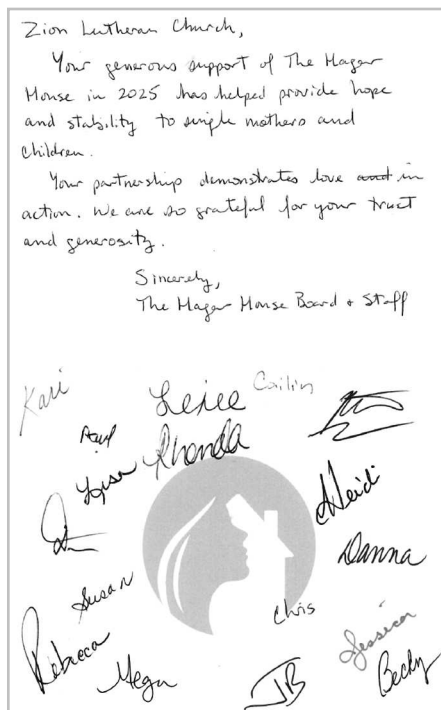 Zion Lutheran Church,
Your generous support of The Hager
House in 2025 has helped provide hope
and stability to single mothers and
children.
Your partnership demonstrates love and in
action. We are so grateful for your trust
and generosity.
Sincerely,
The Hager House Board + Staff
Kari
Caitlin
Paul
Lisa Rhonda
Heidi
Danna
Susan
Chris
Rebecca
Jessica
Megan
JB
Becky